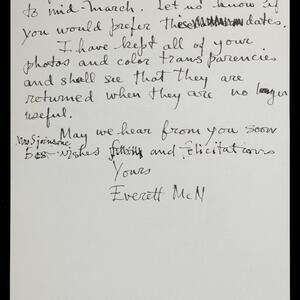 to mid-march. Let us know if
you would prefer these dates.
I have kept all of your
photos and color transparencies
and shall see that they are
returned when they are no longer
useful.
May we hear from you soon
Best wishes and felicitations
Yours
Everett McN